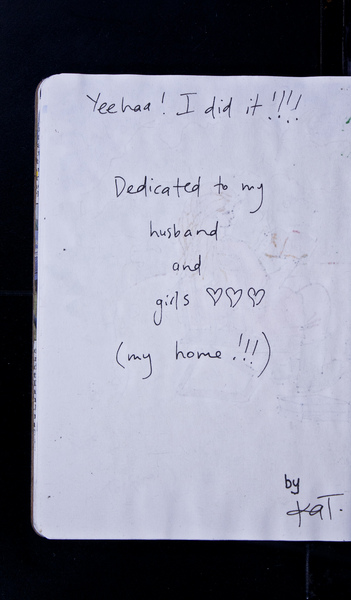 Yeehaa! I did it!!!!
Dedicated to my
husband
and
girls ♡♡♡
(my home!!!)
by
KaT.